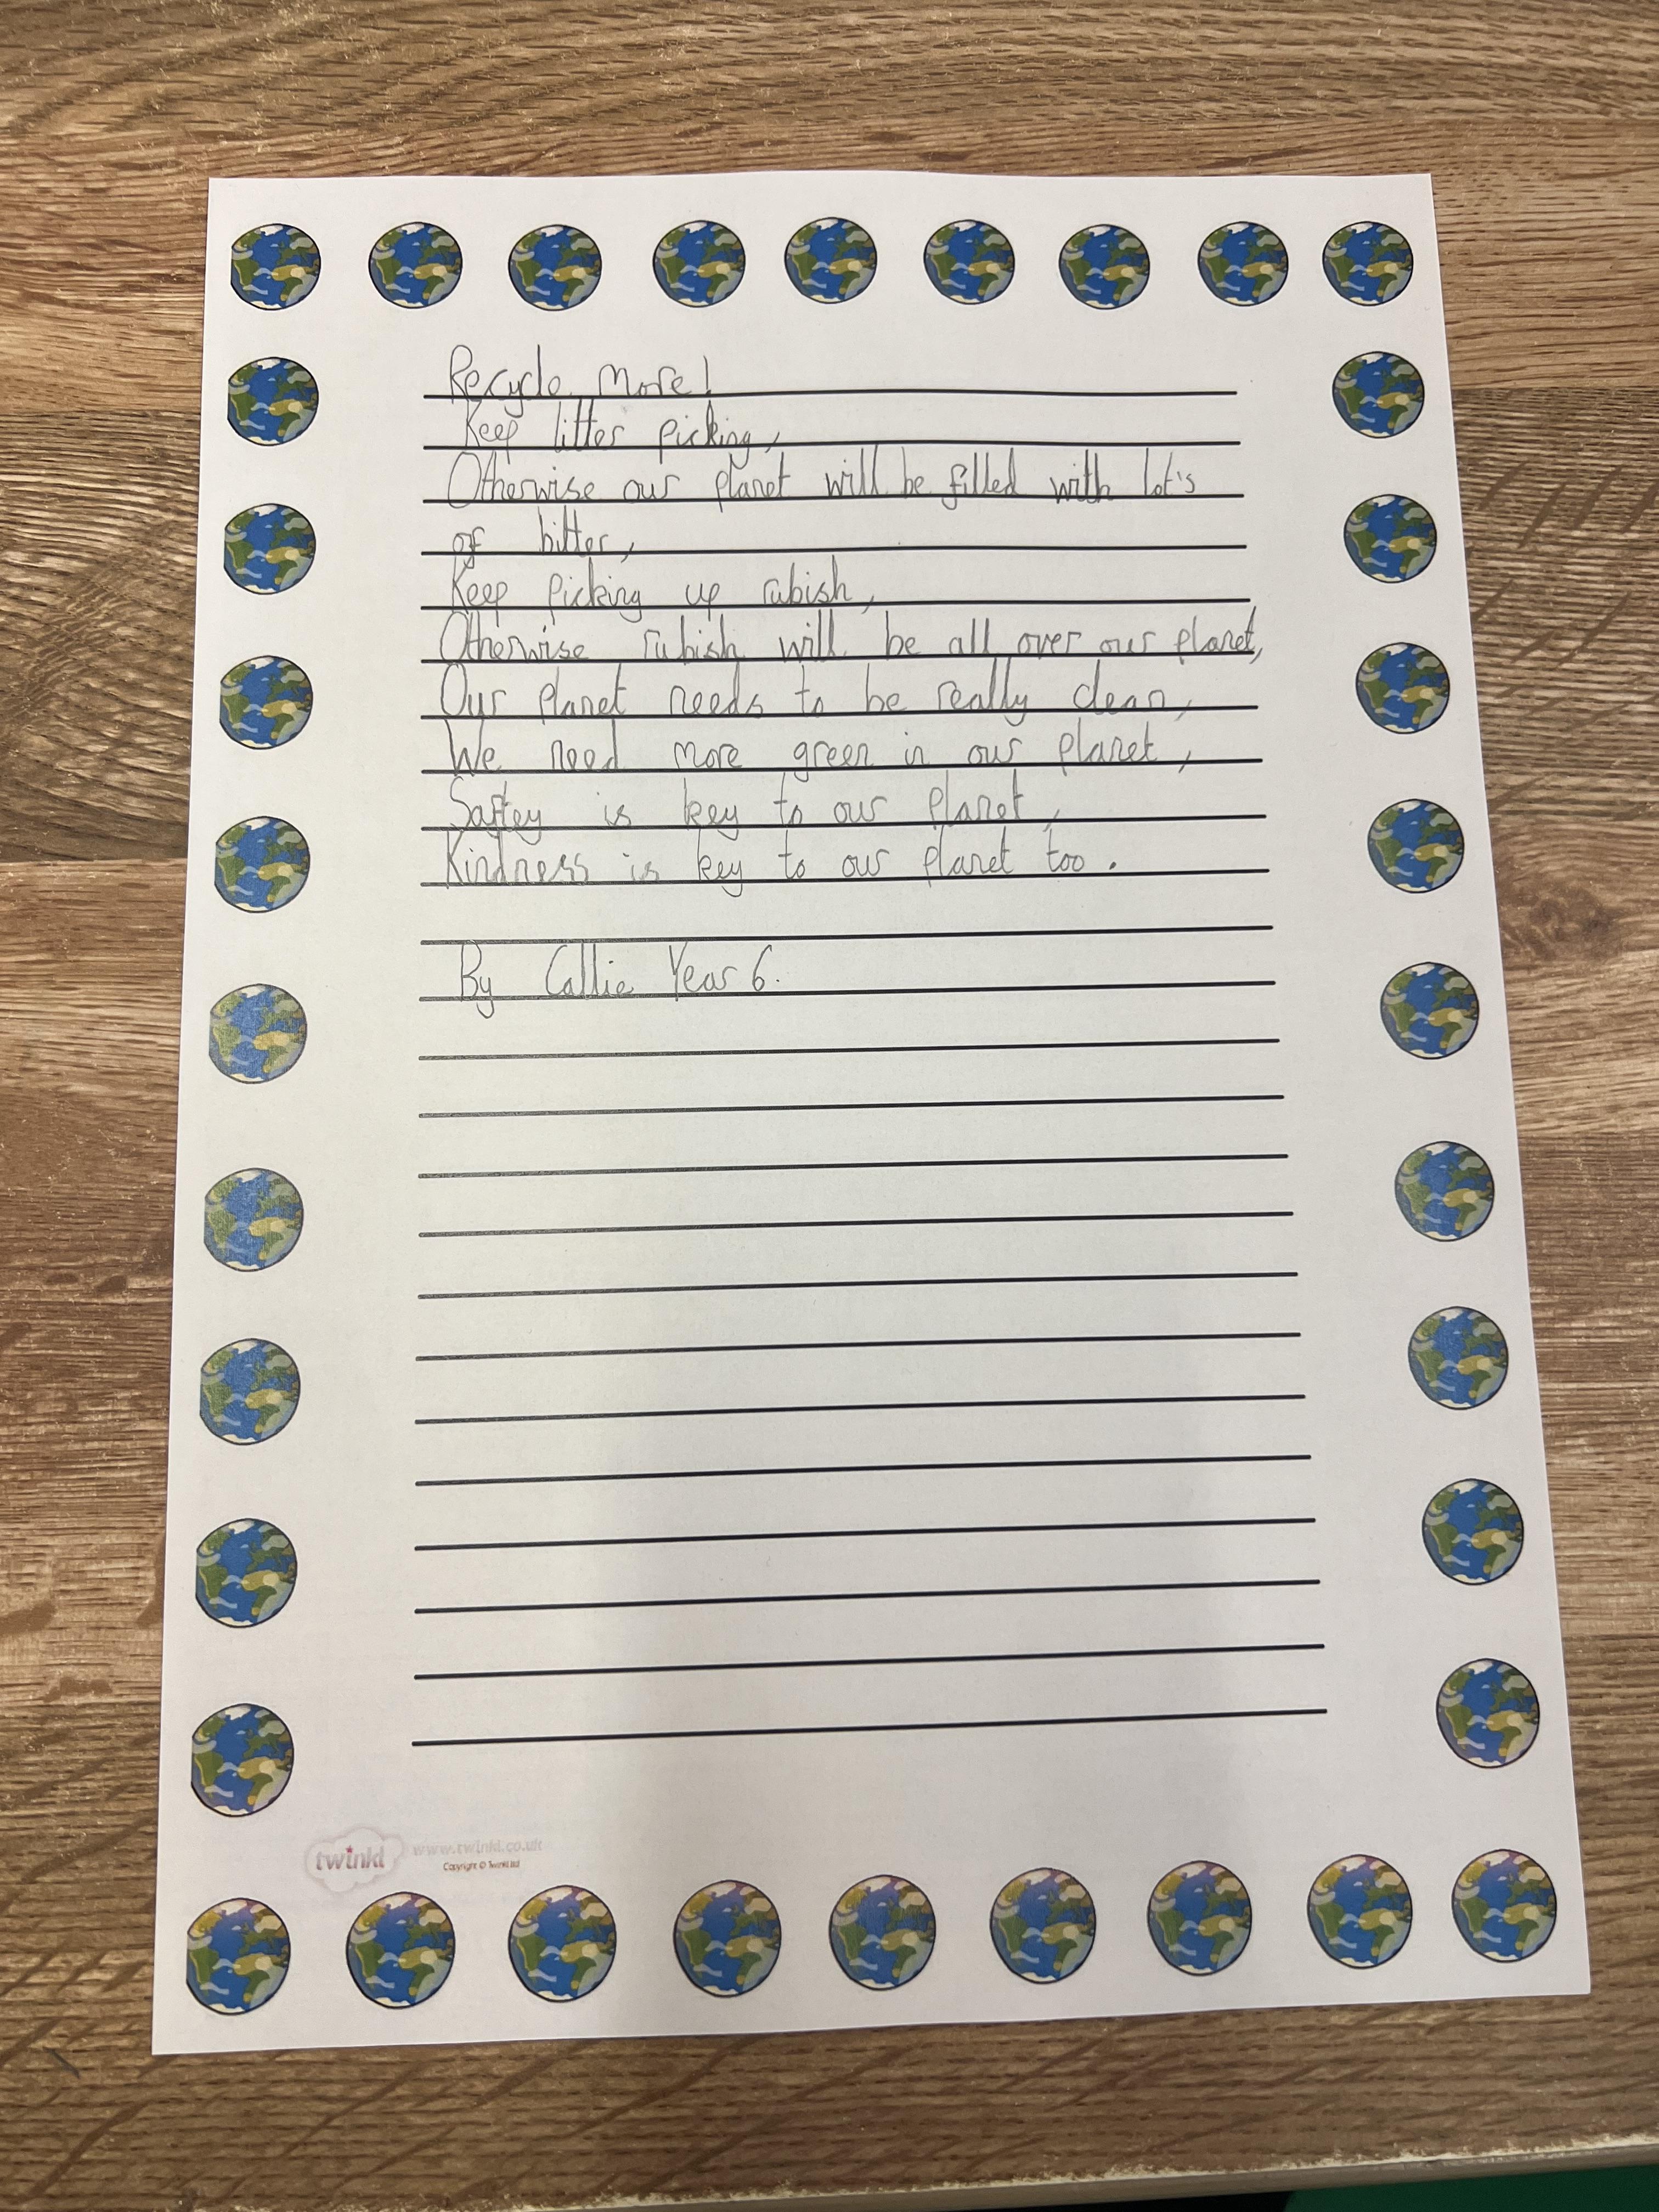 Recycle More!
Keep litter picking,
Otherwise our planet will be filled with lot's
of bitter,
Keep picking up rubish,
Otherwise rubish will be all over our planet,
Our planet needs to be really clean,
We need more green in our planet,
Saftey is key to our planet,
Kindness is key to our planet too.
By Callie Year 6.
twinkl www.twinkl.co.uk
Copyright © Twinkl Ltd